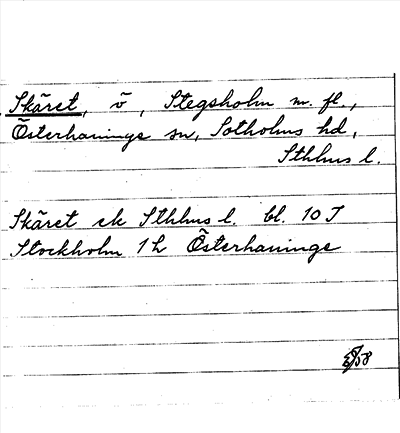 Skäret, ö, Stegsholm m. fl.,
Österhaninge sn, Sotholms hd,
Sthlms l.
Skäret ek Sthlms l. bl. 10 J
Stockholm 1 h Österhaninge
58